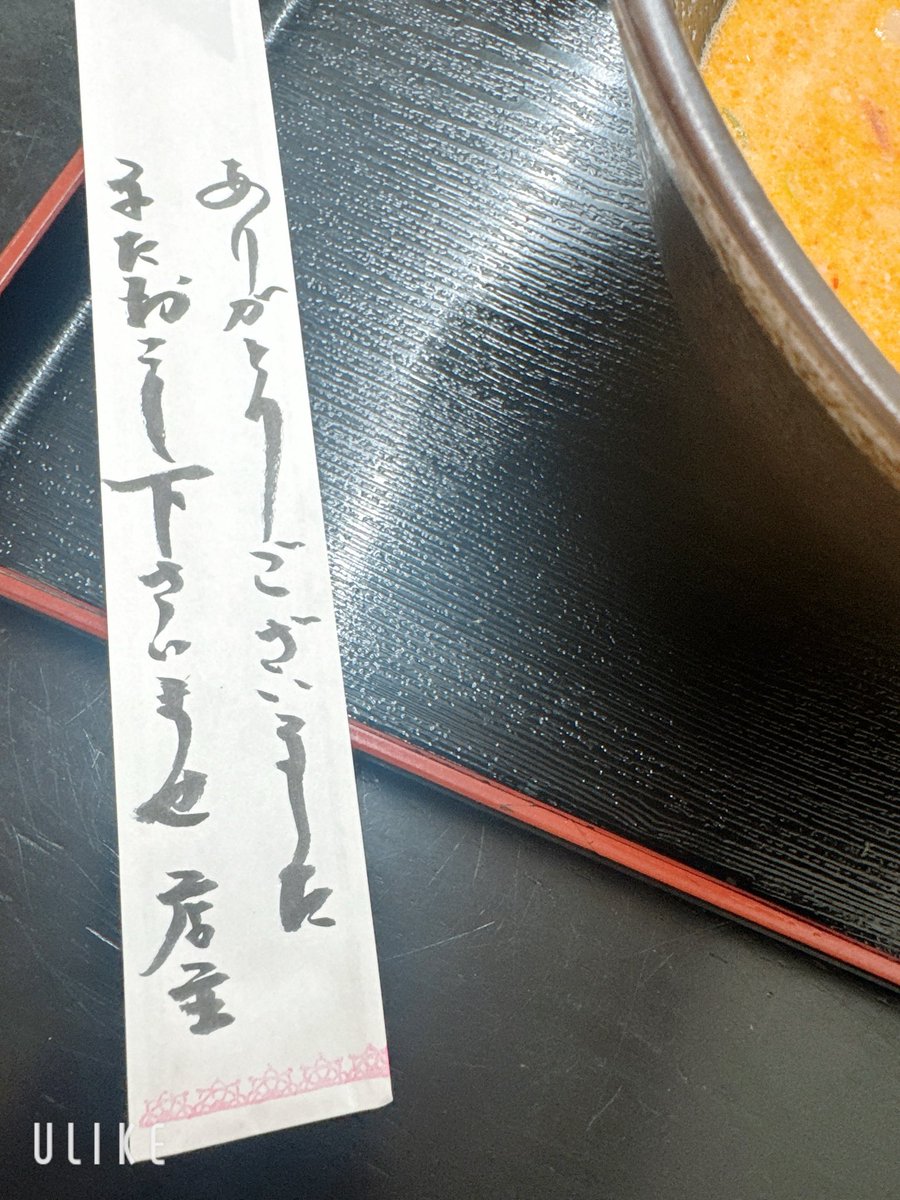 ありがとうございました
またお こし下さいませ 店主
ULIKE